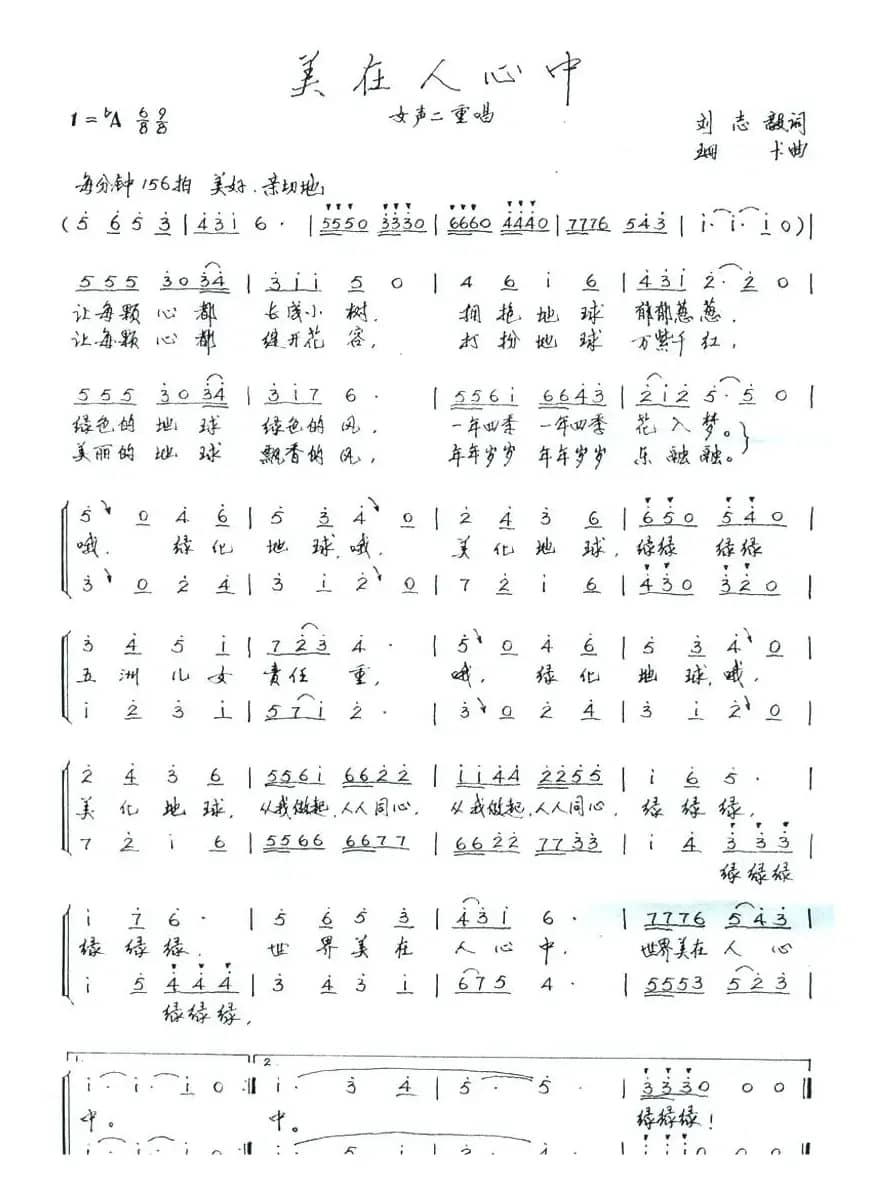 美在人心中
女声二重唱
1=♭A 6/8 9/8
刘志毅词
珊卡曲
每分钟156拍 美好.亲切地
(5 6 5 3 | 4 3 i 6 · | 5550 3330 | 6660 4440 | 7776 543 | i · i · i 0 ) |
5 5 5 3 0 3 4 | 3 i i 5 0 | 4 6 i 6 | 4 3 i 2 · 2 0 |
让每颗心都 长成小树, 拥抱地球 郁郁葱葱,
让每颗心都 绽开花容, 打扮地球 万紫千红,
5 5 5 3 0 3 4 | 3 i 7 6 · | 5 5 6 i 6 6 4 3 | 2 i 2 5 · 5 0 |
绿色的地球 绿色的风, 一年四季 一年四季 花入梦。
美丽的地球 飘香的风, 年年岁岁 年年岁岁 乐融融。
5 0 4 6 | 5 3 4 0 | 2 4 3 6 | 6 5 0 5 4 0 |
哦, 绿化地球,哦, 美化地球,绿绿 绿绿
3 0 2 4 | 3 i 2 0 | 7 2 i 6 | 4 3 0 3 2 0 |
3 4 5 i | 7 2 3 4 · | 5 0 4 6 | 5 3 4 0 |
五洲儿女 责任重, 哦, 绿化地球,哦,
i 2 3 i | 5 7 i 2 · | 3 0 2 4 | 3 i 2 0 |
2 4 3 6 | 5 5 6 i 6 6 2 2 | i i 4 4 2 2 5 5 | i 6 5 · |
美化地球, 从我做起,人人同心, 从我做起,人人同心, 绿绿绿,
7 2 i 6 | 5 5 6 6 6 6 7 7 | 6 6 2 2 7 7 3 3 | i 4 3 3 3 |
绿绿绿
i 7 6 · | 5 6 5 3 | 4 3 i 6 · | 7 7 7 6 5 4 3 |
绿绿绿, 世界美在 人心中, 世界美在人心
i 5 4 4 4 | 3 4 3 i | 6 7 5 4 · | 5 5 5 3 5 2 3 |
绿绿绿,
1. 2.
i · i · i 0 :‖ i · 3 4 | 5 · 5 · | 3 3 3 0 0 0 ‖
中。 中。 绿绿绿!